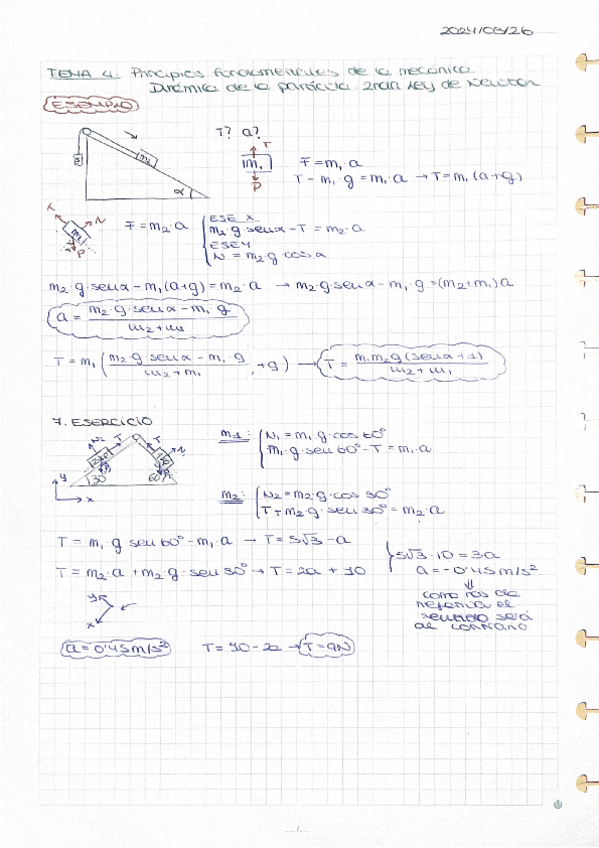 2024/03/26
TEMA 4. Principios fundamentales de la mecánica.
Dinámica de la partícula. 2nda Ley de Newton
EJEMPLO
T? a?
m₂
α
T
m₁
P
F = m₁·a
T - m₁·g = m₁·a → T = m₁(a+g)
T N
m₂
P
F = m₂·a
EJE X
m₂·g·senα - T = m₂·a
EJE Y
N = m₂·g cosα
m₂·g·senα - m₁(a+g) = m₂·a → m₂·g·senα - m₁·g = (m₂+m₁)a
a = (m₂·g·senα - m₁·g)/(m₂+m₁)
T = m₁((m₂·g senα - m₁·g)/(m₂+m₁) + g) → T = m₁m₂g(senα+1)/(m₂+m₁)
7. EJERCICIO
N₂ T T N
2kg 1kg
30 60°
y
x
m1: N₁ = m₁ g·cos 60°
m₁·g·sen 60° - T = m₁·a
m2: N₂ = m₂·g·cos 30°
T - m₂·g·sen 30° = m₂·a
T = m₁·g sen 60° - m₁·a → T = 5√3 - a
T = m₂·a + m₂·g·sen 30° → T = 2a + 10
5√3 - 10 = 3a
a = -0'45 m/s²
⇓
como nos da
negativa el
sentido será
al contrario
y
x
a = 0'45 m/s²
T = 10 - 2a → T = 9N